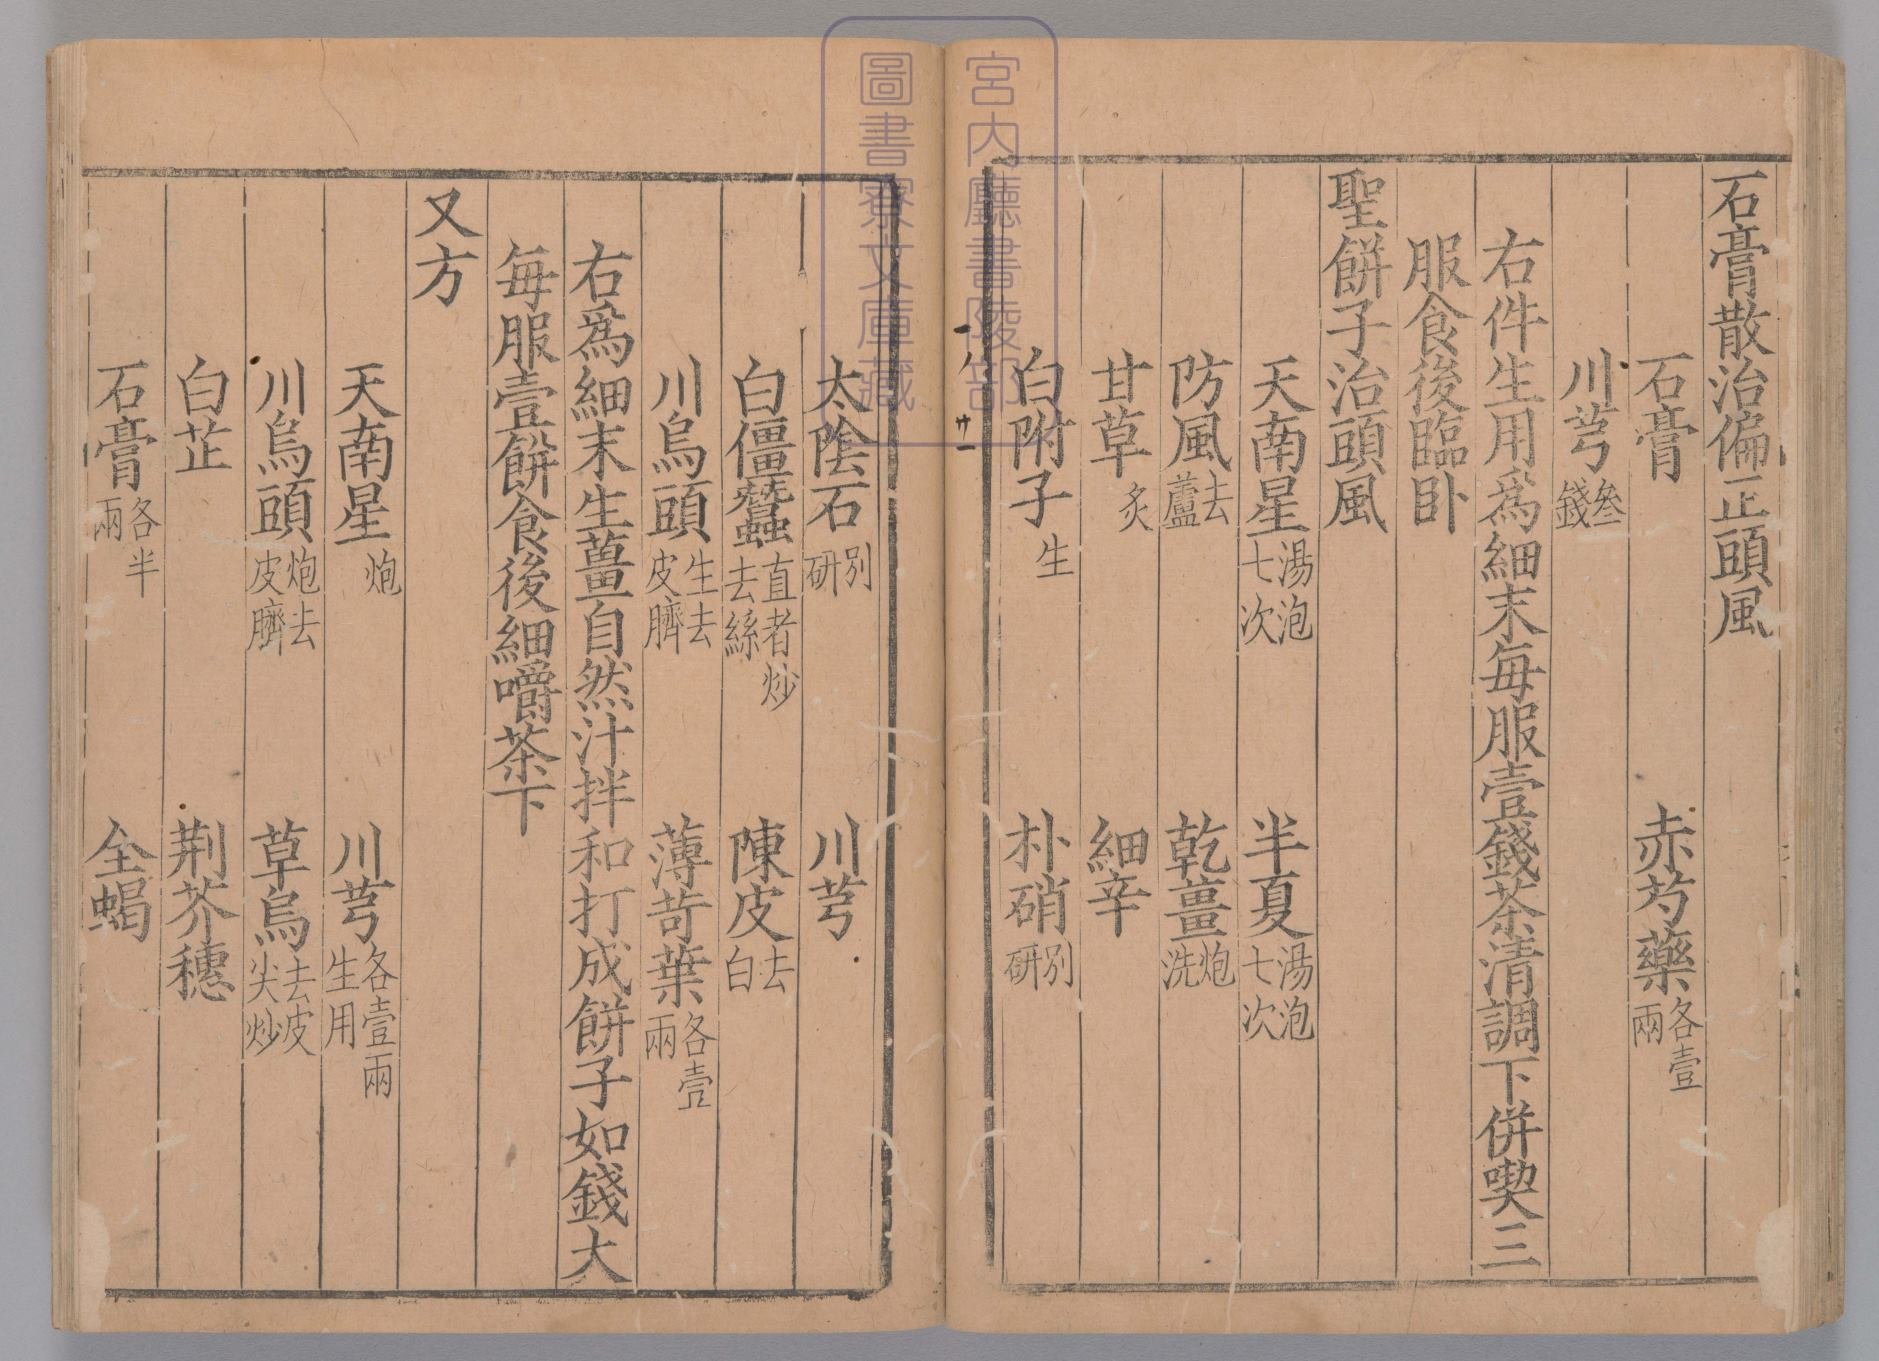 石膏散治偏正頭風
石膏　赤芍藥各壹兩
川芎叁錢
右件生用爲細末每服壹錢茶清調下併喫三
服食後臨卧
聖餅子治頭風
天南星湯泡七次　半夏湯泡七次
防風去蘆　乾薑炮洗
甘草炙　細辛
白附子生　朴硝別研
一八　廿一
太陰石別研　川芎
白僵蠶直者炒去絲　陳皮去白
川烏頭生去皮臍　薄苛葉各壹兩
右爲細末生薑自然汁拌和打成餅子如錢大
每服壹餅食後細嚼茶下
又方
天南星炮　川芎各壹兩生用
川烏頭炮去皮臍　草烏去皮尖炒
白芷　荆芥穗
石膏各半兩　全蝎
宮内廳書陵部
圖書寮文庫藏